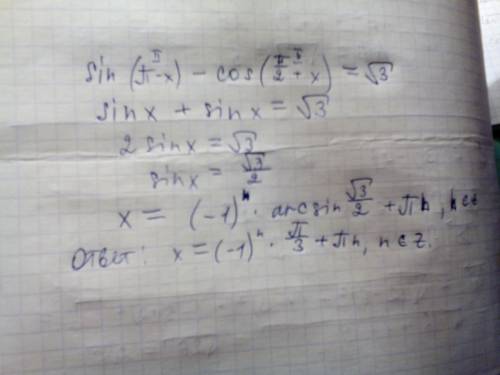 sin(π-x) - cos(π/2 + x) = √3
sinx + sinx = √3
2 sinx = √3
sinx = √3/2
x = (-1)ⁿ · arcsin √3/2 + πn, n∈z
Ответ: x = (-1)ⁿ · π/3 + πn, n∈z.